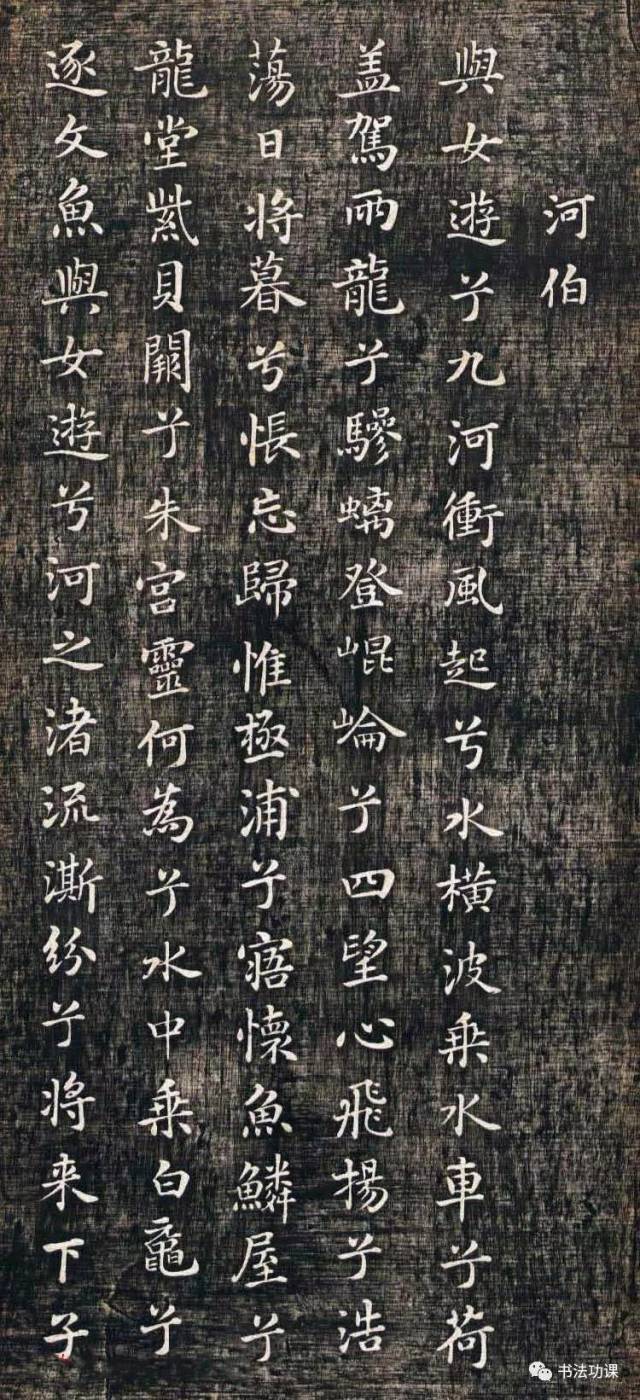 河伯
與女遊兮九河衝風起兮水横波乗水車兮荷
盖駕兩龍兮驂螭登崐崘兮四望心飛揚兮浩
蕩日将暮兮悵忘歸惟極浦兮寤懐魚鱗屋兮
龍堂紫貝闕兮朱宫靈何為兮水中乗白黿兮
逐文魚與女遊兮河之渚流澌紛兮将来下子
书法功课